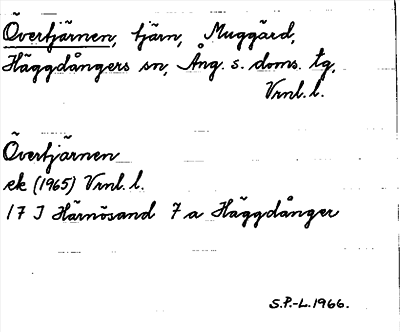 Övertjärnen, tjärn, Muggärd,
Häggdångers sn, Ång. s. doms. tg,
Vrnl. l.
Övertjärnen
ek (1965) Vrnl. l.
17 I Härnösand 7 a Häggdånger
S.P.-L. 1966.